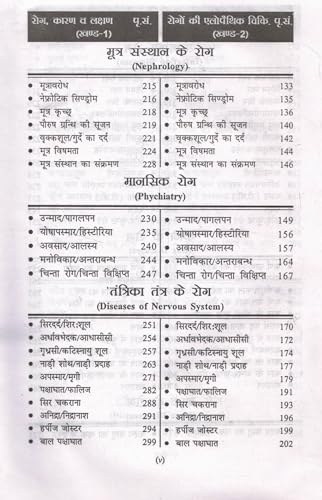 रोग, कारण व लक्षण पृ.सं. रोगों की एलोपैथिक चिकि. पृ.सं.
(खण्ड-1) (खण्ड-2)
मूत्र संस्थान के रोग
(Nephrology)
• मूत्रावरोध 215 • मूत्रावरोध 133
• नेफ्रोटिक सिण्ड्रोम 216 • नेफ्रोटिक सिण्ड्रोम 135
• मूत्र कृच्छ्र 218 • मूत्र कृच्छ्र 136
• पौरुष ग्रन्थि की सूजन 219 • पौरुष ग्रन्थि की सूजन 140
• वृक्कशूल/गुर्दे का दर्द 221 • वृक्कशूल/गुर्दे का दर्द 142
• मूत्र विषमता 224 • मूत्र विषमता 144
• मूत्र संस्थान का संक्रमण 228 • मूत्र संस्थान का संक्रमण 146
मानसिक रोग
(Phychiatry)
• उन्माद/पागलपन 230 • उन्माद/पागलपन 149
• योषापस्मार/हिस्टीरिया 235 • योषापस्मार/हिस्टीरिया 156
• अवसाद/आलस्य 240 • अवसाद/आलस्य 157
• मनोविकार/अन्तराबन्ध 244 • मनोविकार/अन्तराबन्ध 164
• चिन्ता रोग/चिन्ता विक्षिप्ति 247 • चिन्ता रोग/चिन्ता विक्षिप्ति 167
तंत्रिका तंत्र के रोग
(Diseases of Nervous System)
• सिरदर्द/शिर:शूल 251 • सिरदर्द/शिर:शूल 170
• अर्धावभेदक/आधासीसी 254 • अर्धावभेदक/आधासीसी 172
• गृध्रसी/कटिस्नायु शूल 257 • गृध्रसी/कटिस्नायु शूल 174
• नाड़ी शोथ/नाड़ी प्रदाह 263 • नाड़ी शोथ/नाड़ी प्रदाह 177
• अपस्मार/मृगी 271 • अपस्मार/मृगी 179
• पक्षाघात/फालिज 282 • पक्षाघात/फालिज 191
• सिर चकराना 288 • सिर चकराना 193
• अनिद्रा/निद्रानाश 291 • अनिद्रा/निद्रानाश 196
• हर्पीज जोस्टर 294 • हर्पीज जोस्टर 199
• बाल पक्षाघात 299 • बाल पक्षाघात 202
(v)